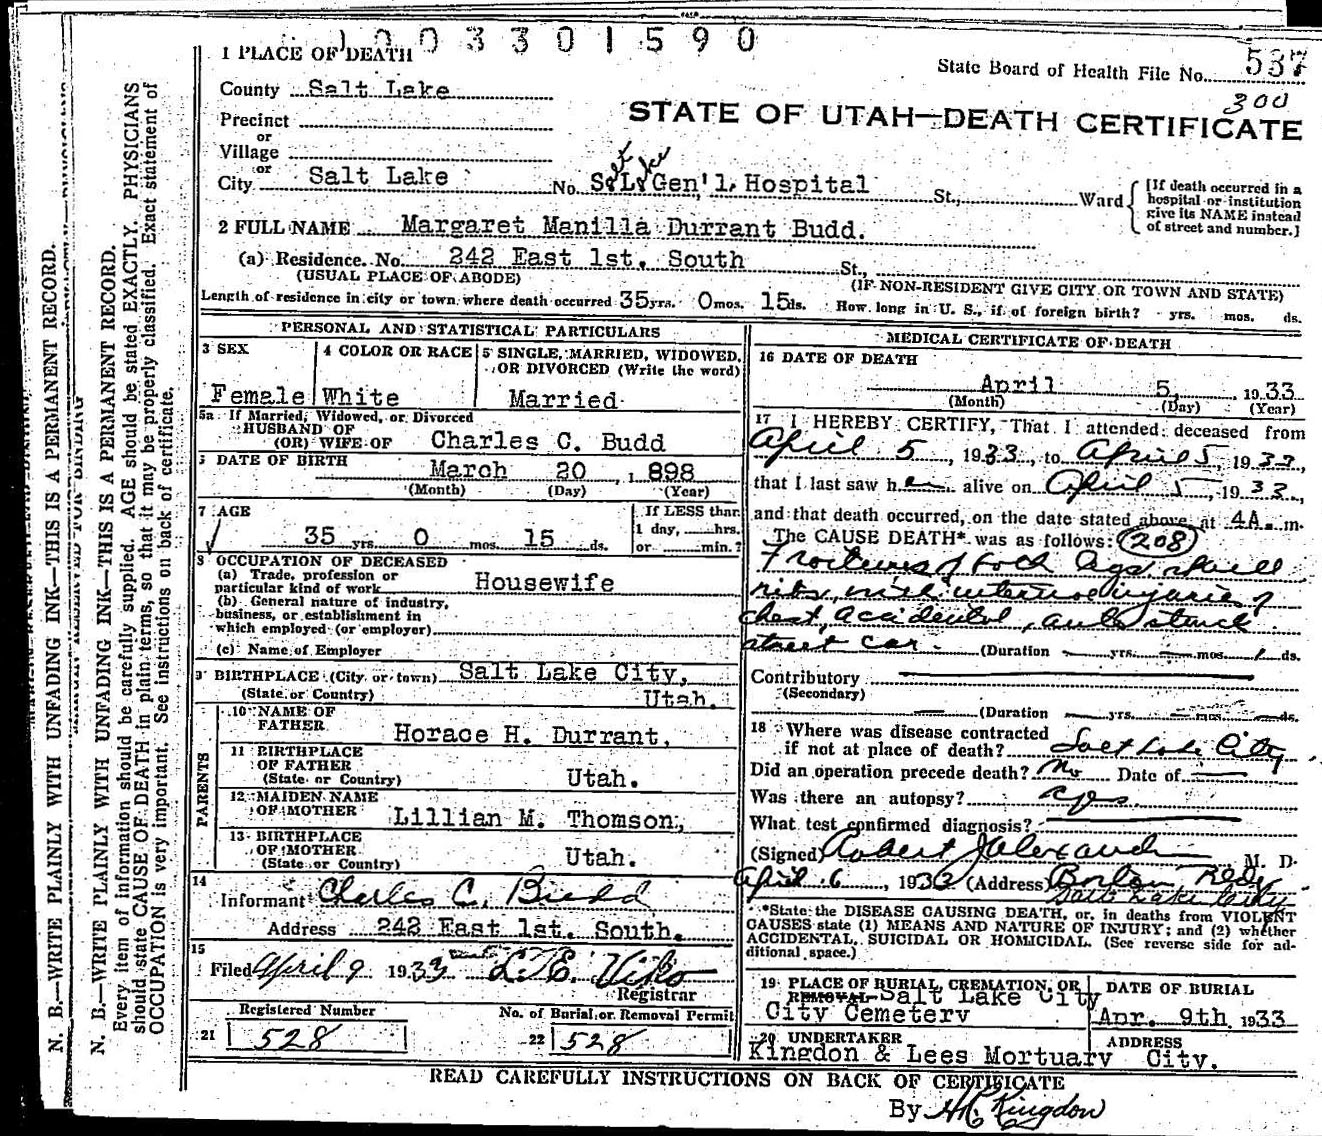 1003301590
1 PLACE OF DEATH
State Board of Health File No. 537
300
County Salt Lake
STATE OF UTAH—DEATH CERTIFICATE
Precinct
or
Village
or
City Salt Lake No. S. L. Gen'l. Hospital St., Ward
Salt Lke
[If death occurred in a
hospital or institution
give its NAME instead
of street and number.]
2 FULL NAME Margaret Manilla Durrant Budd.
(a) Residence. No. 242 East 1st. South St.,
(USUAL PLACE OF ABODE) (IF NON-RESIDENT GIVE CITY OR TOWN AND STATE)
Length of residence in city or town where death occurred 35 yrs. 0 mos. 15 ds. How long in U. S., if of foreign birth? yrs. mos. ds.
PERSONAL AND STATISTICAL PARTICULARS
3 SEX 4 COLOR OR RACE 5 SINGLE, MARRIED, WIDOWED,
OR DIVORCED (Write the word)
Female White Married
5a If Married, Widowed, or Divorced
HUSBAND OF
(OR) WIFE OF Charles C. Budd
DATE OF BIRTH March 20, 1898
(Month) (Day) (Year)
7 AGE If LESS than
1 day, hrs.
35 yrs. 0 mos. 15 ds. or min.?
8 OCCUPATION OF DECEASED
(a) Trade, profession or
particular kind of work Housewife
(b) General nature of industry,
business, or establishment in
which employed (or employer)
(c) Name of Employer
9 BIRTHPLACE (City or town) Salt Lake City,
(State or Country) Utah.
PARENTS
10 NAME OF
FATHER Horace H. Durrant,
11 BIRTHPLACE
OF FATHER
(State or Country) Utah.
12 MAIDEN NAME
OF MOTHER Lillian M. Thomson,
13 BIRTHPLACE
OF MOTHER
(State or Country) Utah.
14
Informant Charles C. Budd
Address 242 East 1st. South.
15
Filed April 9 1933 L. E. Viko
Registrar
Registered Number No. of Burial or Removal Permit
21 528 22 528
MEDICAL CERTIFICATE OF DEATH
16 DATE OF DEATH
April 5, 1933
(Month) (Day) (Year)
17 I HEREBY CERTIFY, That I attended deceased from
April 5, 1933, to April 5, 1933,
that I last saw her alive on April 5, 1933,
and that death occurred, on the date stated above, at 4A. m.
The CAUSE DEATH* was as follows: 208
Fractures of both legs, skull
ribs, with internal injuries of
chest, accidental, auto struck
street car. (Duration yrs. mos. 1 ds.
Contributory
(Secondary)
(Duration yrs. mos. ds.
18 Where was disease contracted
if not at place of death? Salt Lake City
Did an operation precede death? No Date of
Was there an autopsy? yes
What test confirmed diagnosis?
(Signed) Robert J Alexander M. D.
April 6, 1933 (Address) Boston Bldg
Salt Lake City
*State the DISEASE CAUSING DEATH, or, in deaths from VIOLENT
CAUSES state (1) MEANS AND NATURE OF INJURY; and (2) whether
ACCIDENTAL, SUICIDAL OR HOMICIDAL. (See reverse side for ad-
ditional space.)
19 PLACE OF BURIAL, CREMATION, OR DATE OF BURIAL
REMOVAL Salt Lake City
City Cemetery Apr. 9th 1933
20 UNDERTAKER ADDRESS
Kingdon & Lees Mortuary City.
READ CAREFULLY INSTRUCTIONS ON BACK OF CERTIFICATE
By H R Kingdon
N. B.—WRITE PLAINLY WITH UNFADING INK—THIS IS A PERMANENT RECORD.
MARGIN RESERVED FOR BINDING
N. B.—WRITE PLAINLY WITH UNFADING INK—THIS IS A PERMANENT RECORD.
Every item of information should be carefully supplied. AGE should be stated EXACTLY. PHYSICIANS
should state CAUSE OF DEATH in plain terms, so that it may be properly classified. Exact statement of
OCCUPATION is very important. See instructions on back of certificate.